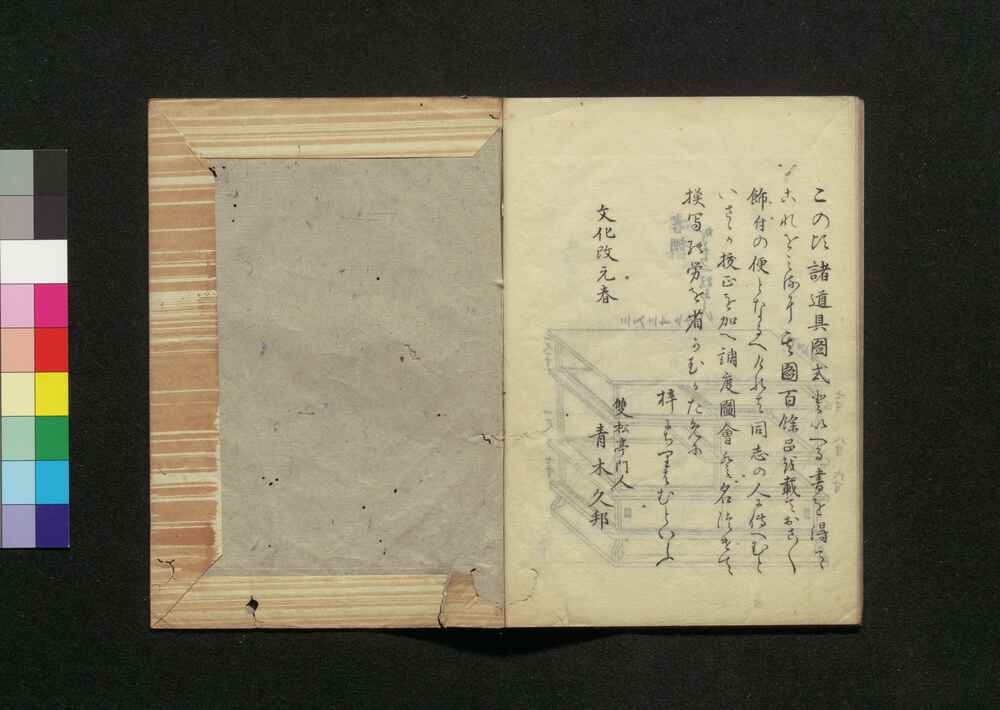 このほ諸道具圖式といへる書を得て
これを見るに其圖百餘品を載ておほく
飾付の便となるべければ同志の人に傳へむと
いさゝか校正を加へ調度圖會と名つけて
摸写の労を省かむかために
梓にちりばむといふ
文化改元春
雙松亭門人
青木久邦